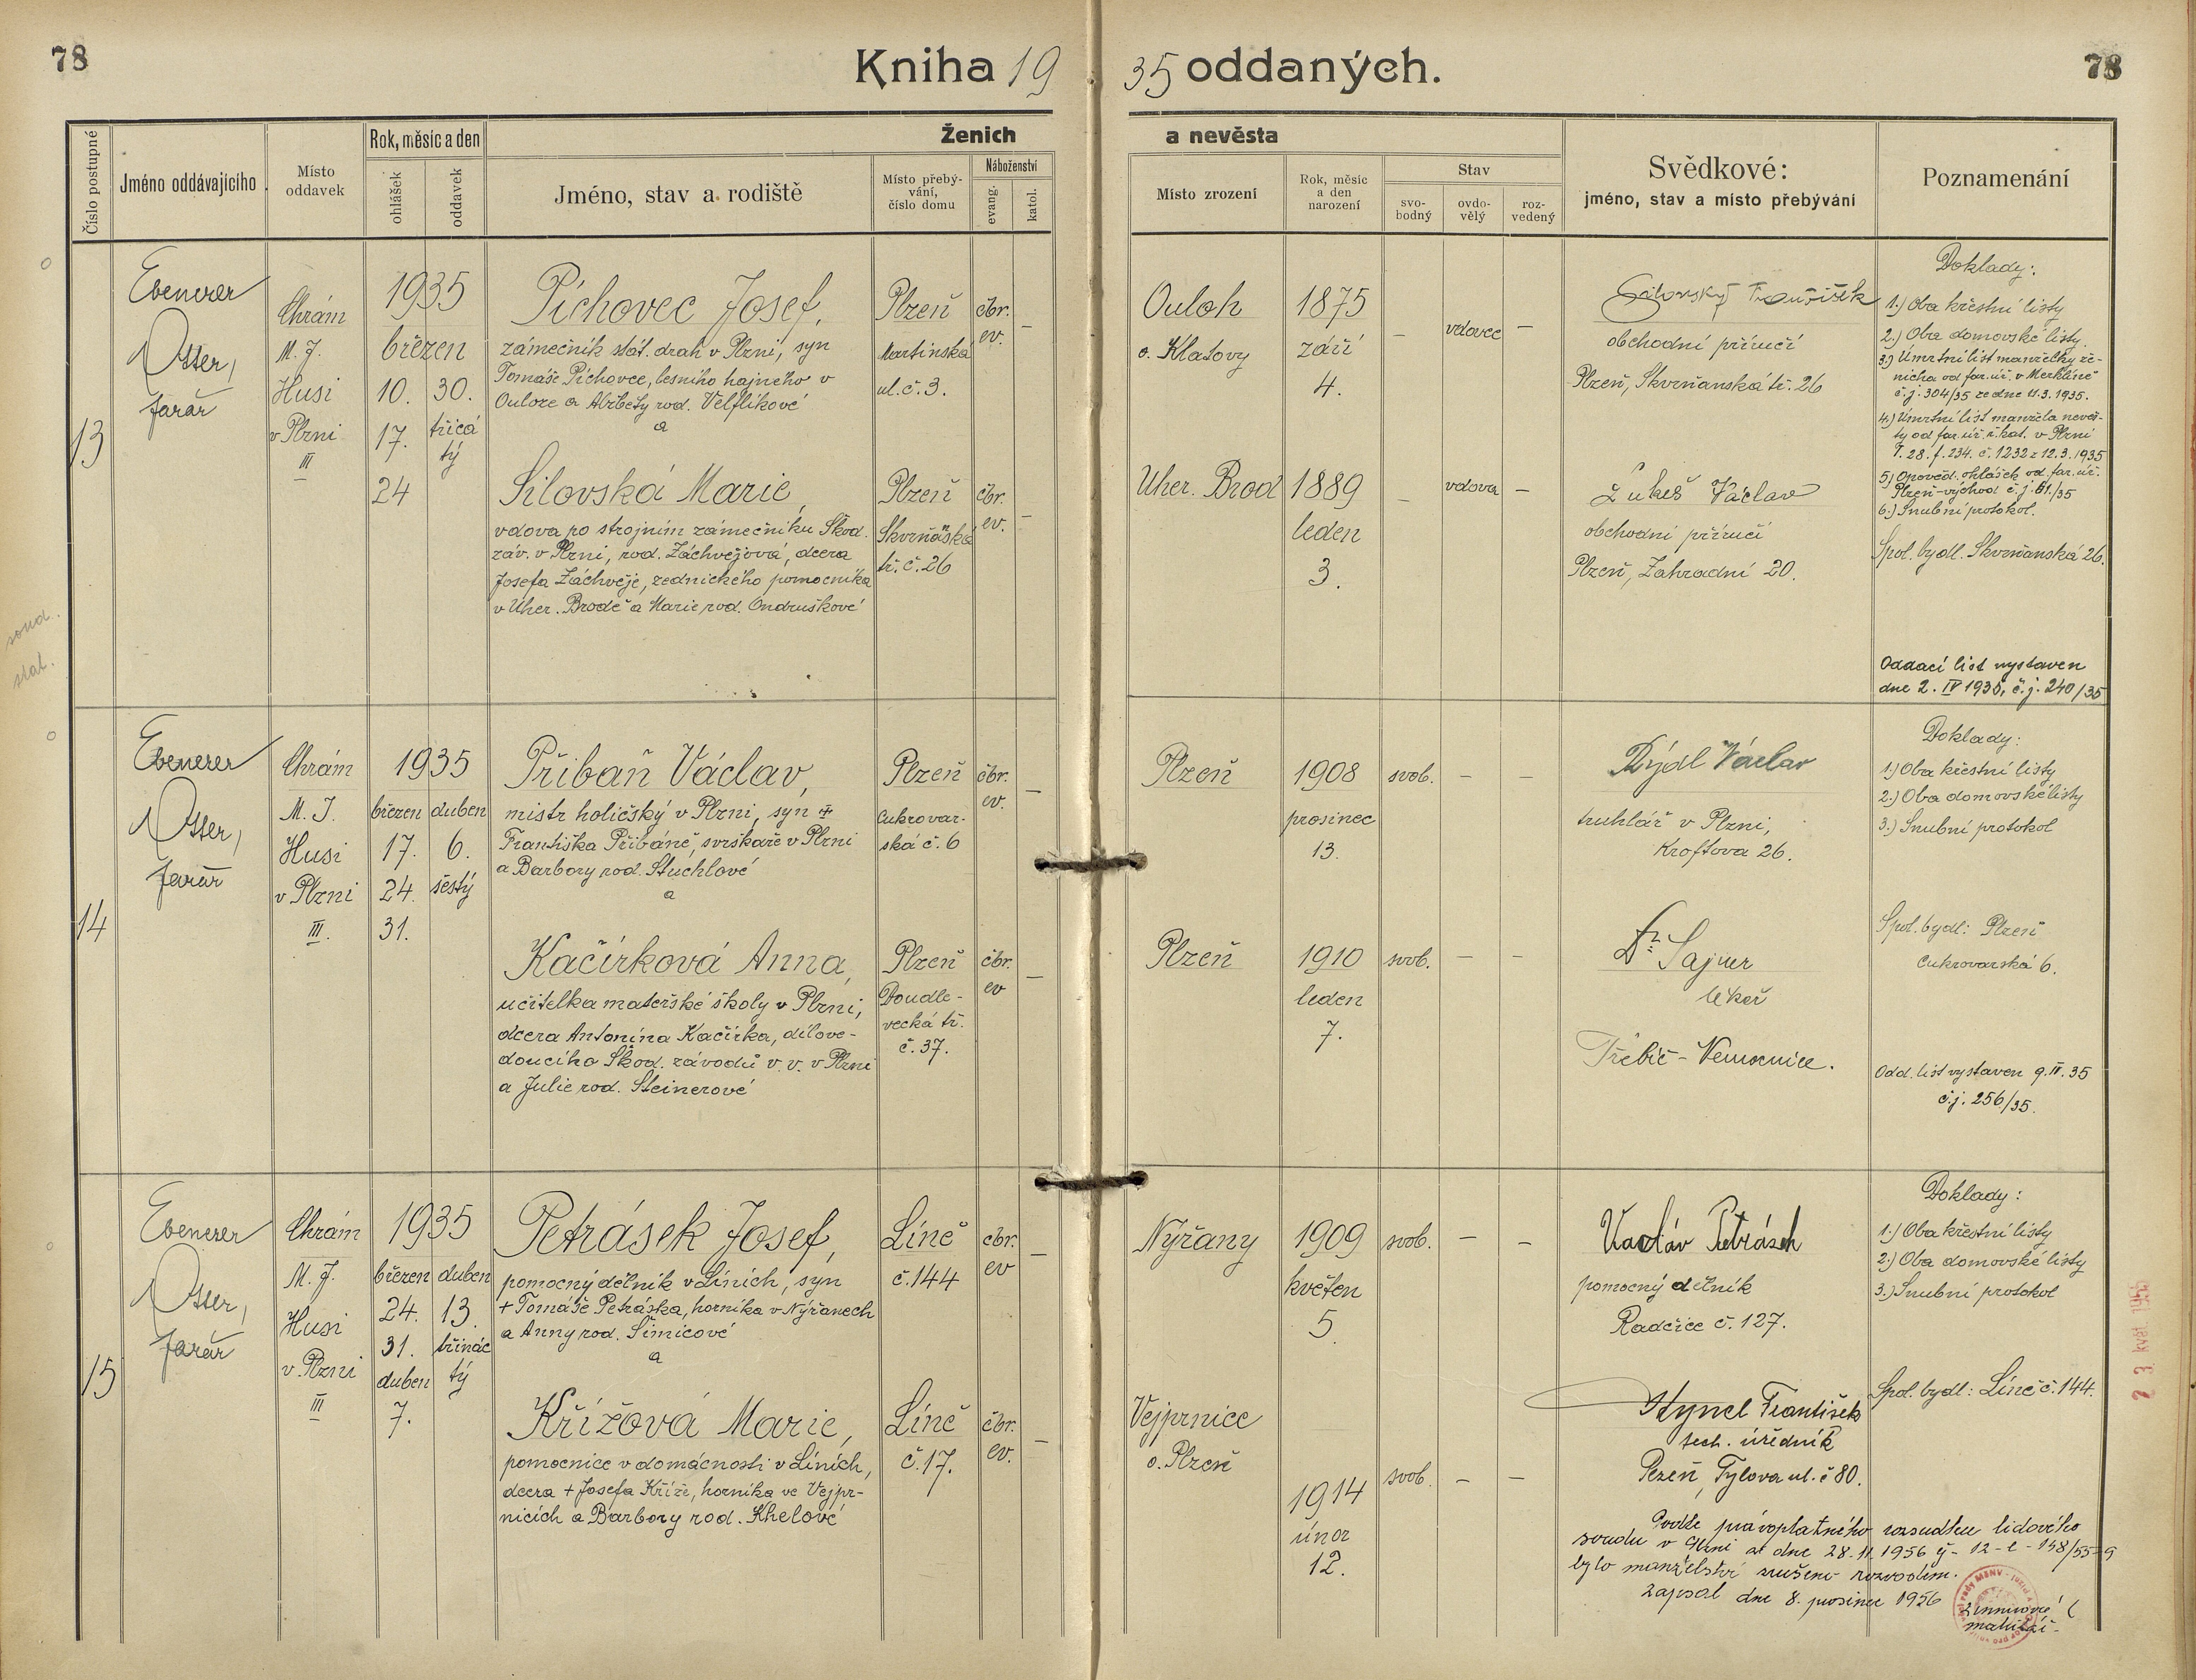 78
Kniha 19 35 oddaných.
78
Číslo postupné
Jméno oddávajícího
Místo oddavek
Rok, měsíc a den
ohlášek
oddavek
Ženich
a nevěsta
Jméno, stav a rodiště
Místo přebývání, číslo domu
Náboženství
evang.
katol.
Místo zrození
Rok, měsíc a den narození
Stav
svobodný
ovdovělý
rozvedený
Svědkové:
jméno, stav a místo přebývání
Poznamenání
13
Ebenezer
Otter,
farář
Chrám
M. J.
Husi
v Plzni
III
1935
březen
10. 30.
17. třicá
tý
24
Píchovec Josef,
zámečník stát. drah v Plzni, syn
Tomáše Píchovce, lesního hajného v
Ouloze a Alžběty rod. Velflíkové
a
Plzeň
Martinská
ul. č. 3.
čbr.
ev.
–
Ouloh
o. Klatovy
1875
září
4.
–
vdovec
–
František
obchodní příručí
Plzeň, Skvrňanská tř. 26
Silovská Marie,
vdova po strojním zámečníku Škod.
záv. v Plzni, rod. Záchvějová, dcera
Josefa Záchvěje, zednického pomocníka
v Uher. Brodě a Marie rod. Ondruškové
Plzeň
Skvrňanská
tř. č. 26
čbr.
ev.
–
Uher. Brod
1889
leden
3.
–
vdova
–
Lukeš Václav
obchodní příručí
Plzeň, Zahradní 20.
Doklady:
1.) Oba křestní listy
2.) Oba domovské listy
3.) Úmrtní list manželky že-
nicha od far. úř. v Merklíně
č. j. 304/35 ze dne 11.3.1935.
4.) Úmrtní list manžela nevěs-
ty od far. úř. ř. kat. v Plzni
T. 28. f. 234. č. 1232 z 12.3.1935
5) Opověd. ohlášek od far. úř.
Plzeň-východ č. j. 61./35
6.) Snubní protokol.
Spol. bydl. Skvrňanská 26.
Oddací list vystaven
dne 2. IV 1935, č. j. 240/35
14
Ebenezer
Otter,
farář
Chrám
M. J.
Husi
v Plzni
III.
1935
březen duben
17. 6.
24. šestý
31.
Přibáň Václav,
mistr holičský v Plzni, syn +
Františka Přibáně, svrškaře v Plzni
a Barbory rod. Stuchlové
a
Plzeň
Cukrovar-
ská č. 6
čbr.
ev.
–
Plzeň
1908
prosinec
13.
svob.
–
–
Rýdl Václav
truhlář v Plzni,
Kroftova 26.
Kačírková Anna,
učitelka mateřské školy v Plzni,
dcera Antonína Kačírka, dílove-
doucího Škod. závodů v. v. v Plzni
a Julie rod. Steinerové
Plzeň
Doudle-
vecká tř.
č. 37.
čbr.
ev
–
Plzeň
1910
leden
7.
svob.
–
–
Dr. Sajner
lékař
Třebíč - Nemocnice.
Doklady:
1.) Oba křestní listy
2.) Oba domovské listy
3.) Snubní protokol
Spol. bydl: Plzeň
Cukrovarská 6.
Odd. list vystaven 9. IV. 35
č. j. 256/35.
15
Ebenezer
Otter,
farář
Chrám
M. J.
Husi
v Plzni
III
1935
březen duben
24. 13.
31. třinác
duben tý
7.
Petrásek Josef,
pomocný dělník v Líních, syn
+ Tomáše Petráska, horníka v Nýřanech
a Anny rod. Šimicové
a
Líně
č. 144
čbr.
ev
–
Nýřany
1909
květen
5.
svob.
–
–
Václav Petrásek
pomocný dělník
Radčice č. 127.
Křížová Marie,
pomocnice v domácnosti v Líních,
dcera + Josefa Kříže, horníka ve Vejpr-
nicích a Barbory rod. Khelové
Líně
č. 17.
čbr.
ev.
–
Vejprnice
o. Plzeň
1914
únor
12.
svob.
–
–
Hynel František
tech. úředník
Plzeň, Tylova ul. č 80.
Doklady:
1.) Oba křestní listy
2.) Oba domovské listy
3.) Snubní protokol
Spol. bydl: Líně č. 144.
Podle právoplatného rozsudku lidového
soudu v Plzni ze dne 28. 11. 1956 č - 12 - C - 148/55-9
bylo manželství zrušeno rozvodem.
Zapsal dne 8. prosince 1956
23. květ. 195